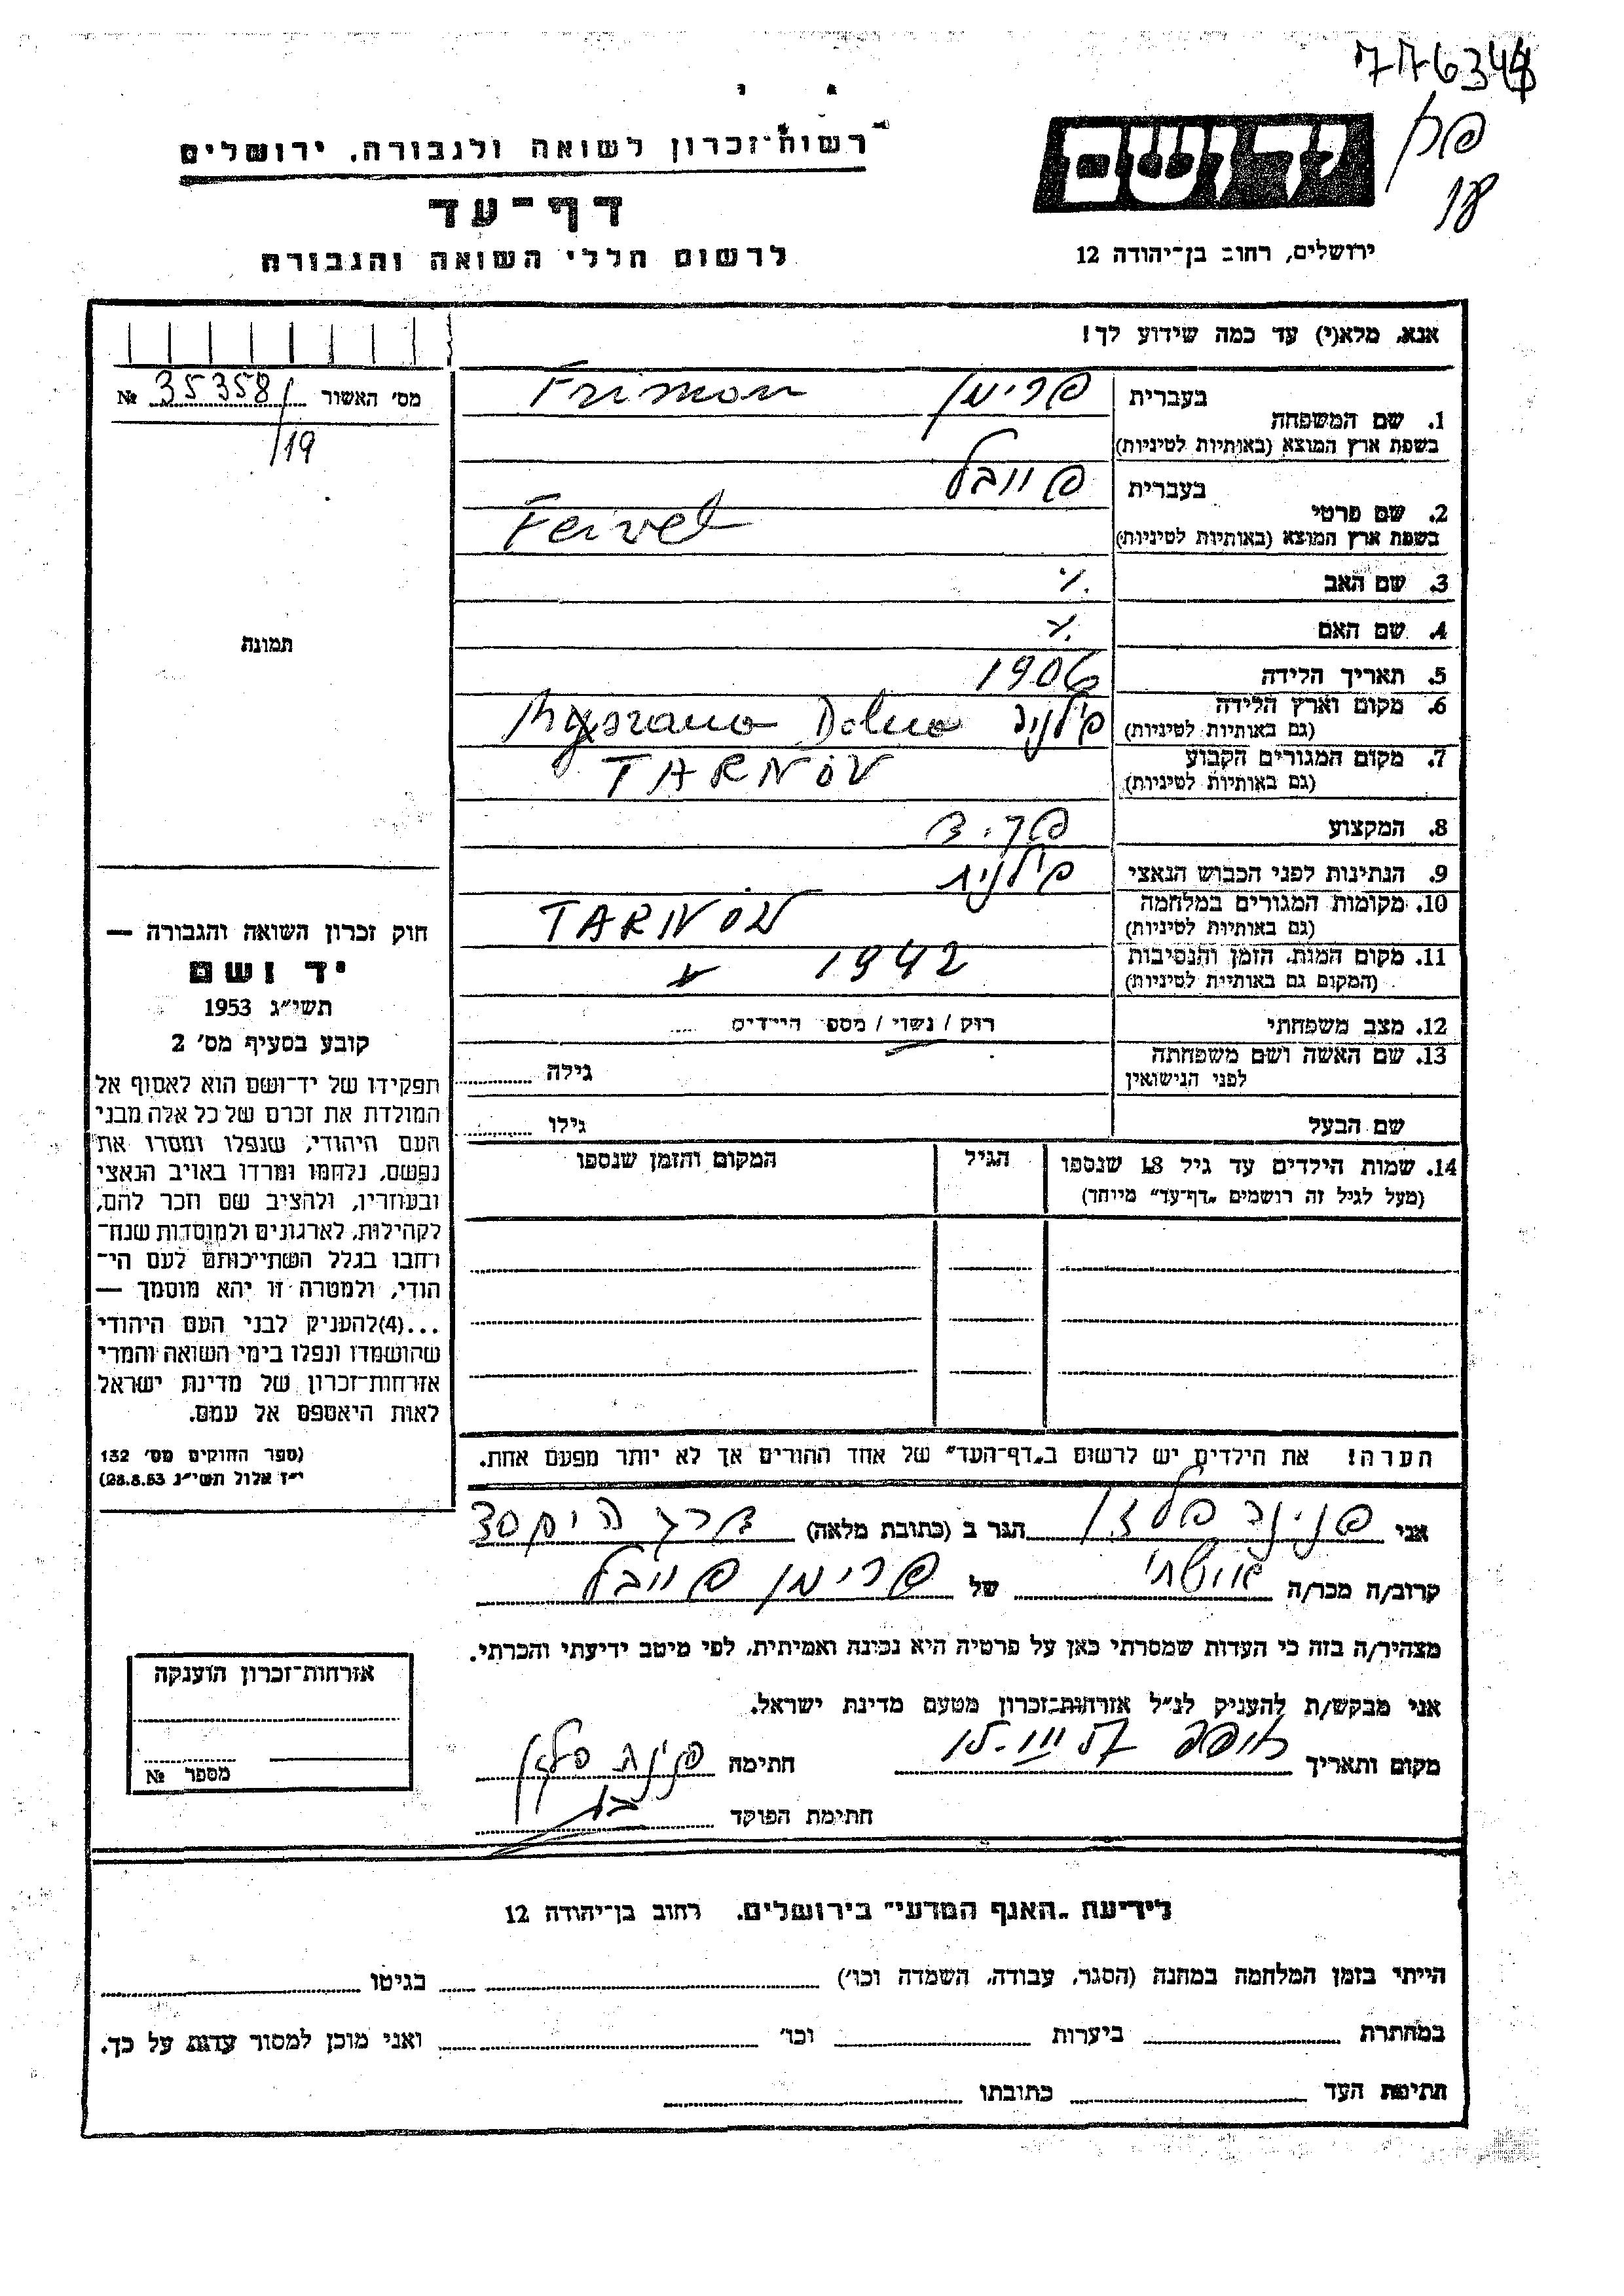 776344
פק
יד ושם
18
רשות-זכרון לשואה ולגבורה, ירושלים
דף-עד
לרשום חללי השואה והגבורה
ירושלים, רחוב בן-יהודה 12
אנא, מלא(י) עד כמה שידוע לך!
מס' האשור 35358/ №
/19
תמונה
1. שם המשפחה בעברית פרימן Friman
בשפת ארץ המוצא (באותיות לטיניות)
2. שם פרטי בעברית פייבל
בשפת ארץ המוצא (באותיות לטיניות) Feivel
3. שם האב
4. שם האם
5. תאריך הלידה 1906
6. מקום וארץ הלידה Dolna
(גם באותיות לטיניות)
7. מקום המגורים הקבוע TARNÓV
(גם באותיות לטיניות)
8. המקצוע
9. הנתינות לפני הכבוש הנאצי פולנית
10. מקומות המגורים במלחמה TARNÓV
(גם באותיות לטיניות)
11. מקום המות, הזמן והנסיבות 1942
(המקום גם באותיות לטיניות)
12. מצב משפחתי רוק / נשוי / מספר הילדים
13. שם האשה ושם משפחתה גילה
לפני הנישואין
שם הבעל גילו
14. שמות הילדים עד גיל 18 שנספו הגיל המקום והזמן שנספו
(מעל לגיל זה רושמים "דף-עד" מיוחד)
הערה! את הילדים יש לרשום ב"דף-העד" של אחד ההורים אך לא יותר מפעם אחת.
חוק זכרון השואה והגבורה —
יד ושם
תשי"ג 1953
קובע בסעיף מס' 2
תפקידו של יד-ושם הוא לאסוף אל
המולדת את זכרם של כל אלה מבני
העם היהודי, שנפלו ומסרו את
נפשם, נלחמו ומרדו באויב הנאצי
ובעוזריו, ולהציב שם וזכר להם,
לקהילות, לארגונים ולמוסדות שנח-
רבו בגלל השתייכותם לעם הי-
הודי, ולמטרה זו יהא מוסמך —
...(4)להעניק לבני העם היהודי
שהושמדו ונפלו בימי השואה והמרי
אזרחות-זכרון של מדינת ישראל
לאות היאספם אל עמם.
(ספר החוקים מס' 132
י"ז אלול תשי"ג 28.8.53)
אני פנינה הגר ב (כתובת מלאה)
קרוב/ה מכר/ה של פרימן פייבל
מצהיר/ה בזה כי העדות שמסרתי כאן על פרטיה היא נכונה ואמיתית, לפי מיטב ידיעתי והכרתי.
אני מבקש/ת להעניק לנ"ל אזרחות-זכרון מטעם מדינת ישראל.
מקום ותאריך חתימה
חתימת הפוקד
אזרחות-זכרון הוענקה
מספר №
לידיעת "האגף המדעי" בירושלים, רחוב בן-יהודה 12
הייתי בזמן המלחמה במחנה (הסגר, עבודה, השמדה וכו') בגיטו
במחתרת ביערות וכו' ואני מוכן למסור עדות על כך.
חתימת העד כתובתו